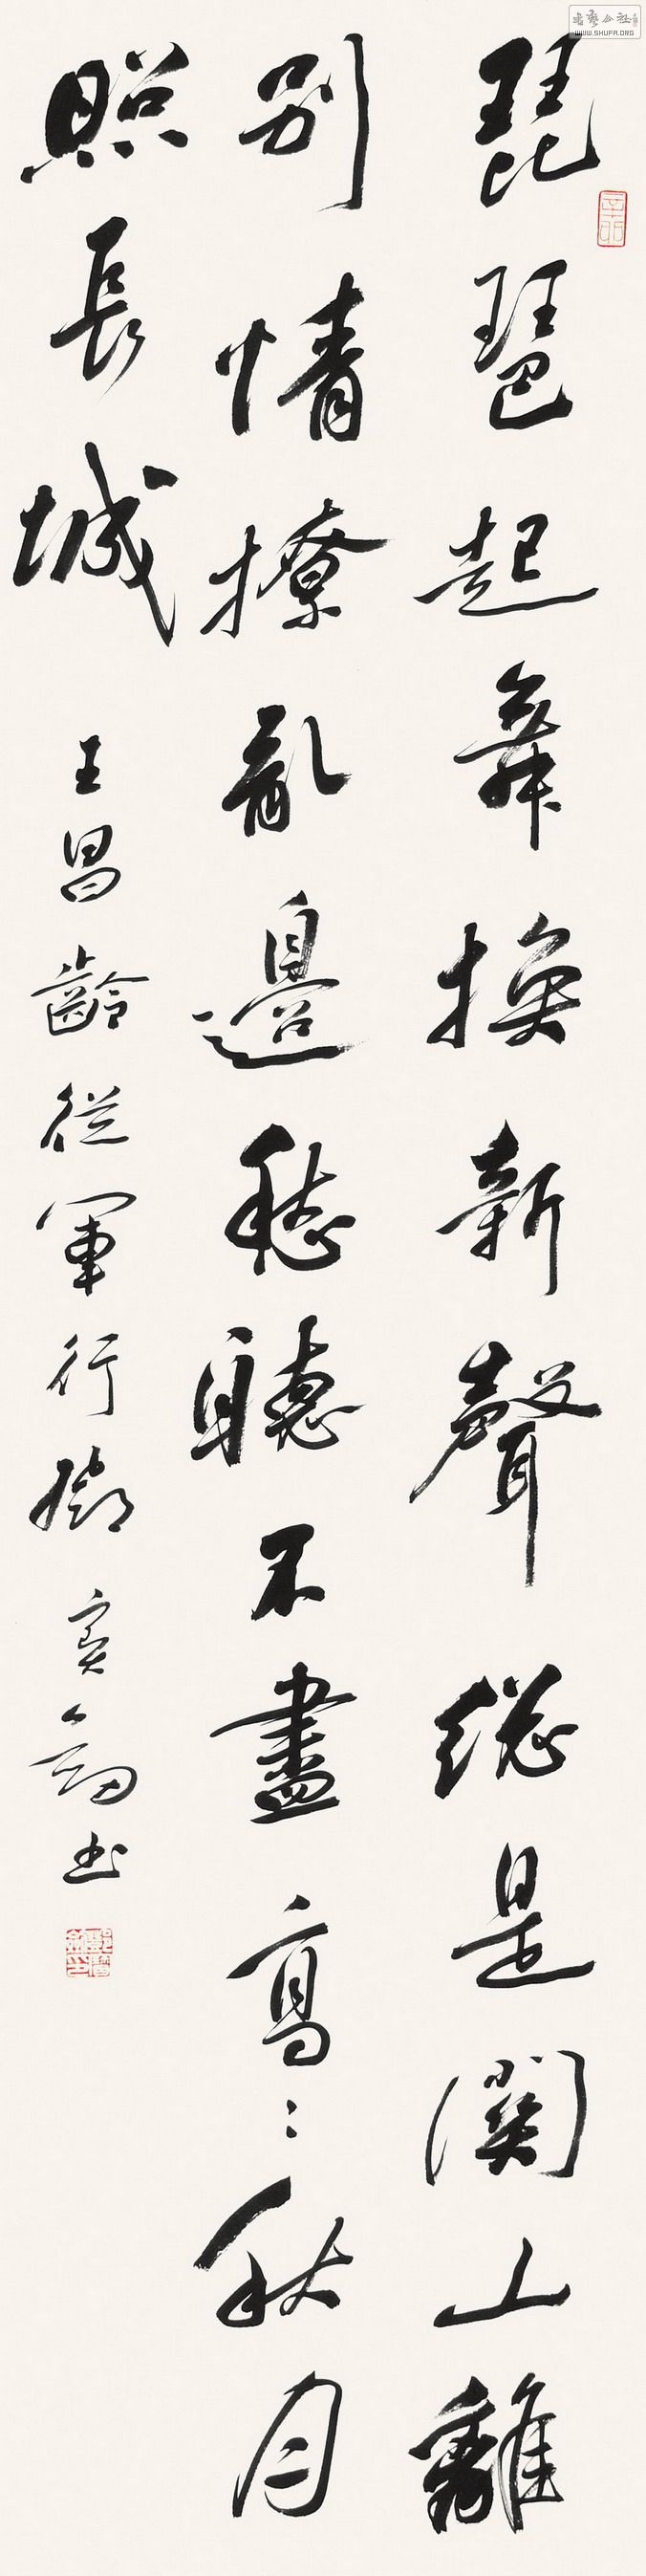 琵琶起舞換新聲總是關山離
別情撩亂邊愁聽不盡高〻秋月
照長城
王昌齡從軍行鄧寶劍书
WWW.SHUFA.ORG